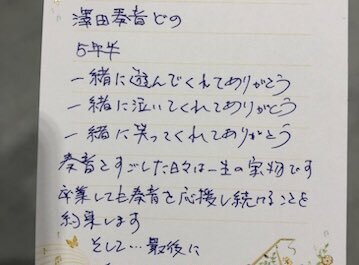 澤田奏音どの
5年半
一緒に遊んでくれてありがとう
一緒に泣いてくれてありがとう
一緒に笑ってくれてありがとう
奏音とすごした日々は一生の宝物です
卒業しても奏音を応援し続けることを
約束します
そして…最後に